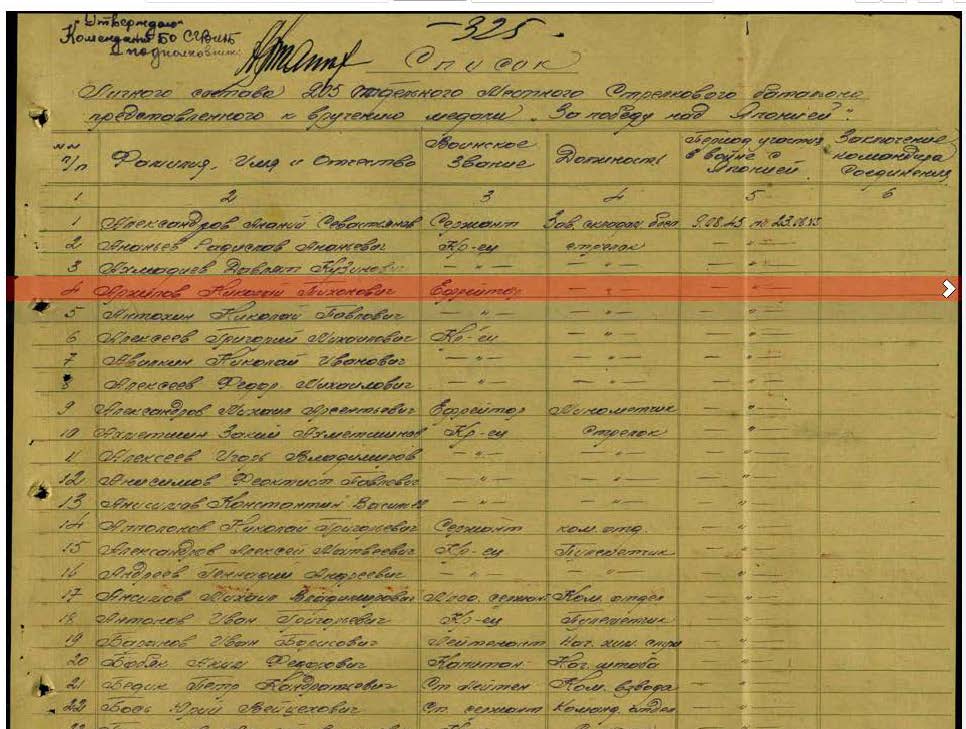 "Утверждаю"
Комендант БО СВВМБ
подполковник:
— 325 .
Список
Личного состава 205 отдельного Местного Стрелкового батальона
представленного к вручению медали „За победу над Японией".
№№ п/п Фамилия, Имя и Отчество Воинское Звание Должность Период участия в войне с Японией Заключение командира Соединения
1 2 3 4 5 6
1 Александров Ананий Сержант Зав. складом 9.08.45 по 23.08.45
2 Ананьев Радислав Ананьевич Кр-ец стрелок — " —
3 Ахмадиев — " — — " — — " —
4 Архипов Николай Тихонович Ефрейтор — " — — " —
5 Антохин Николай Павлович — " — — " — — " —
6 Алексеев Григорий Михайлович Кр-ец — " — — " —
7 Авилкин Николай Иванович — " — — " — — " —
8 Алексеев Федор Михайлович — " — — " — — " —
9 Александров Михаил Арсентьевич Ефрейтор Минометчик — " —
10 Ахметшин Заким Ахметшинов Кр-ец Стрелок — " —
11 Алексеев Игорь Владимиров — " — — " — — " —
12 Анисимов Феоктист Павлович — " — — " — — " —
13 Константин — " — — " — — " —
14 Николай Григорьевич Сержант ком. отд. — " —
15 Александров Алексей Матвеевич Кр-ец Пулеметчик — " —
16 Андреев Геннадий Андреевич — " — — " — — " —
17 Михаил Владимирович Млад. сержант Ком. отдел — " —
18 Антонов Иван Григорьевич Кр-ец Пулеметчик — " —
19 Баранов Иван Борисович Лейтенант Нач. хим. — " —
20 Аким Федорович Капитан Нач. штаба — " —
21 Бедик Петр Кондратьевич Ст. лейтен Ком. взвода — " —
22 Юрий Войцехович Ст. сержант Команд. отдел — " —